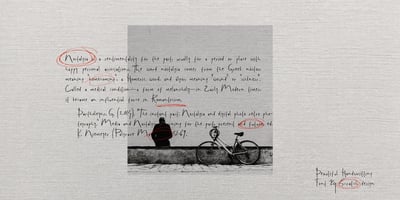 Nostalgia is a sentimentality for the past, usually for a period or place with
happy personal associations. The word nostalgia comes from the Greek
meaning "homecoming", a Homeric word and algos, meaning "wound" or "sickness".
Called a medical condition—a form of melancholy—in Early Modern times
it became an influential force in Romanticism.
Bartholeyns, G. (2014). "The instant past: Nostalgia and digital photo retro pho-
tography." Media and Nostalgia. Yearning for the past, present and future, ed.
K. Niemeyer (Palgrave
Beautiful Handwritten
Font By
design